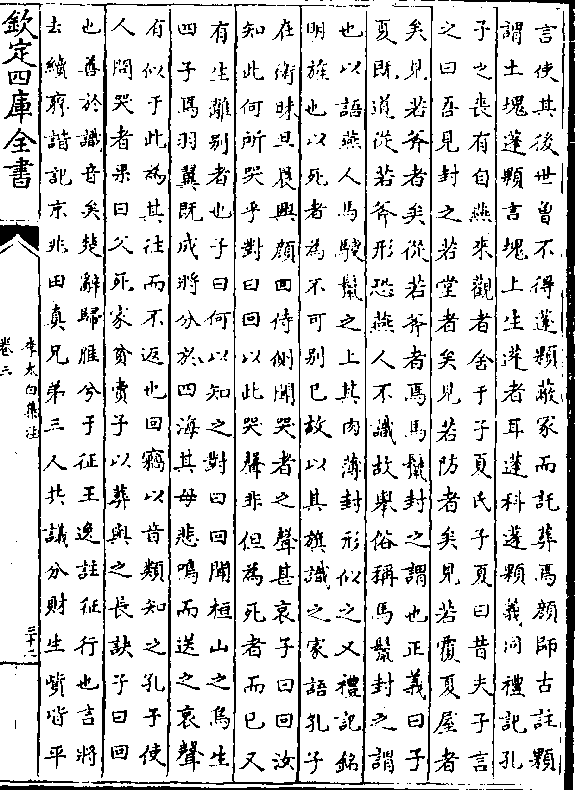 言使其後世曽不得蓬顆蔽冡而託葬焉顔師古註顆
謂土塊蓬顆言塊上生蓬者耳蓬科蓬顆義同禮記孔
子之喪有自燕來觀者舍于子夏氏子夏曰昔夫子言
之曰吾見封之若堂者矣見若防者矣見若覆夏屋者
矣見若斧者矣從若斧者焉馬鬛封之謂也正義曰子
夏既道從若斧形恐燕人不識故舉俗稱馬鬛封之謂
也以語燕人馬騣鬛之上其肉薄封形似之又禮記銘
明旌也以死者為不可别已故以其旗識之家語孔子
在衛昧旦晨興顔回侍側聞哭者之聲甚哀子曰回汝
知此何所哭乎對曰回以此哭聲非但為死者而已又
有生離别者也子曰何以知之對曰回聞桓山之鳥生
四子焉羽翼既成將分於四海其母悲鳴而送之哀聲
有似于此為其往而不返也回竊以音類知之孔子使
人問哭者果曰父死家貧賣子以葬與之長訣子曰回
也善於識音矣楚辭歸雁兮于征王逸註征行也言將
去續齊諧記京兆田真兄弟三人共議分財生貲皆平
欽定四庫全書
李太白集注
卷三
三十二